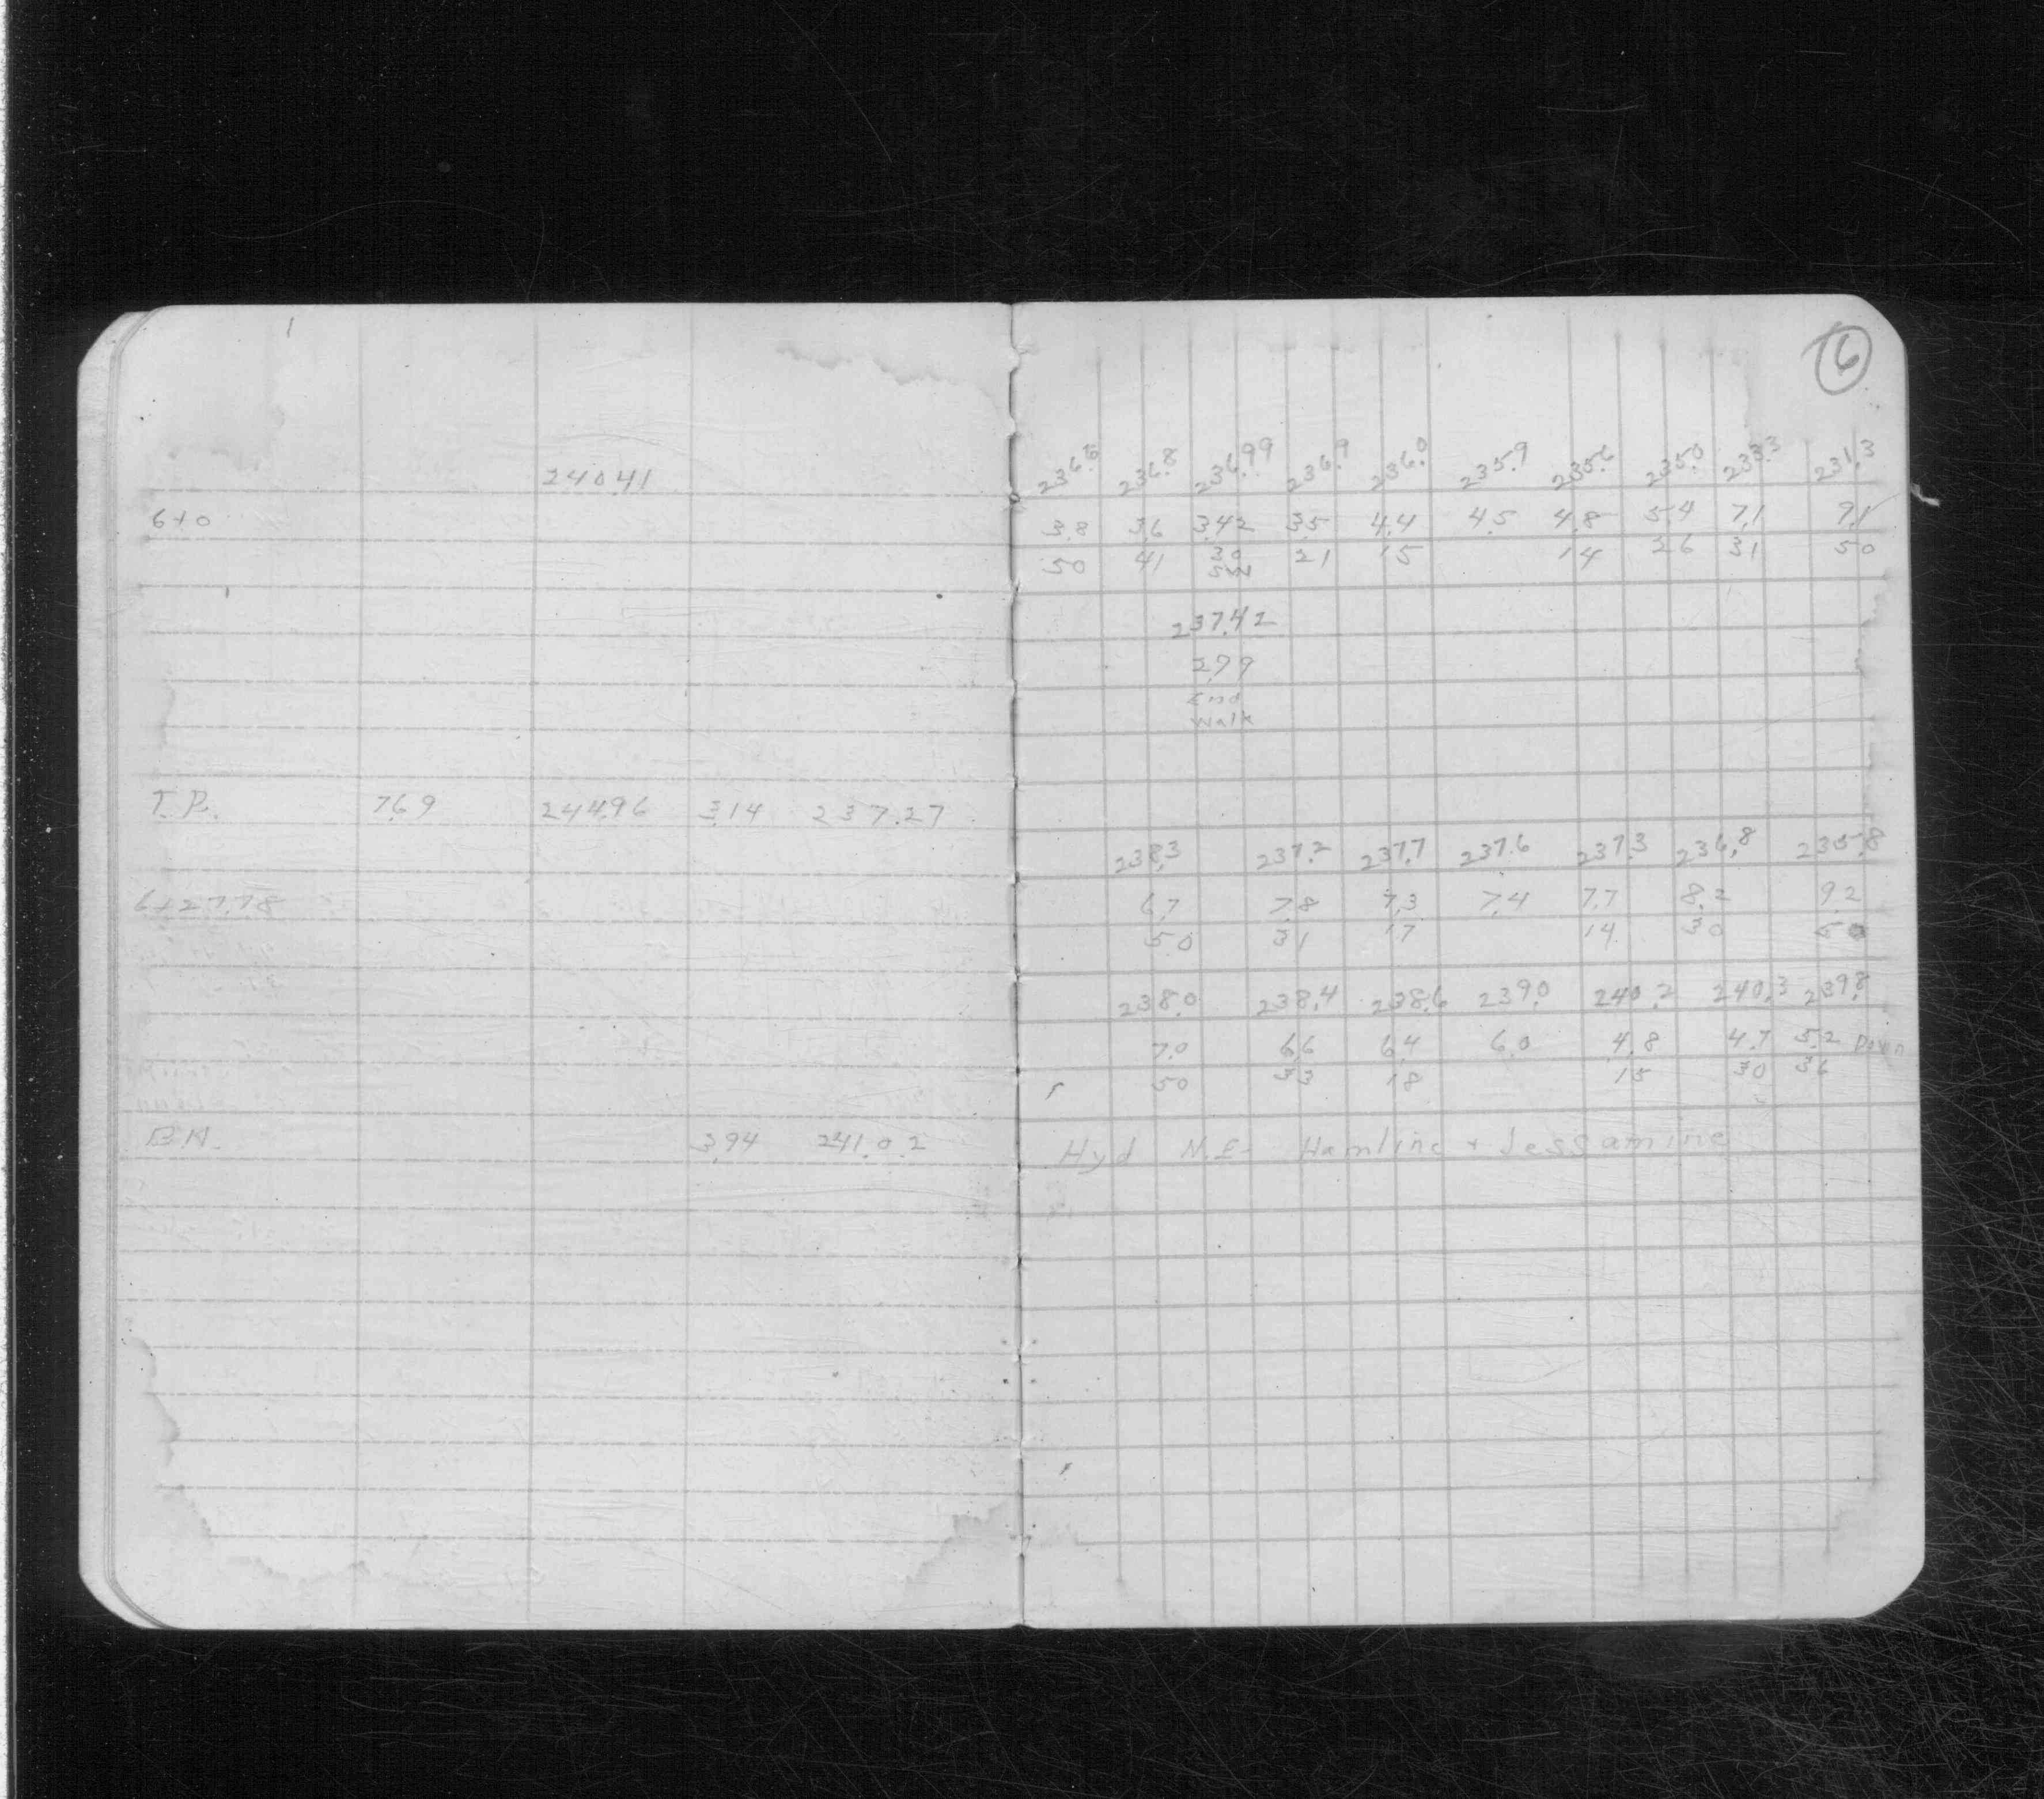 6
240.41
236.6 236.8 236.99 236.9 236.0 235.9 235.6 235.0 233.3 231.3
6+0
3.8 3.6 3.42 3.5 4.4 4.5 4.8 5.4 7.1 9.1
50 41 30 21 15 14 26 31 50
SW
237.42
2.99
End
Walk
T.P. 7.69 244.96 3.14 237.27
238.3 237.2 237.7 237.6 237.3 236.8 235.8
6+27.78
6.7 7.8 7.3 7.4 7.7 8.2 9.2
50 31 17 14 30 50
238.0 238.4 238.6 239.0 240.2 240.3 239.8
7.0 6.6 6.4 6.0 4.8 4.7 5.2 Down
50 33 18 15 30 36
B.M. 3.94 241.02
Hyd N.E. Hamline + Jessamine